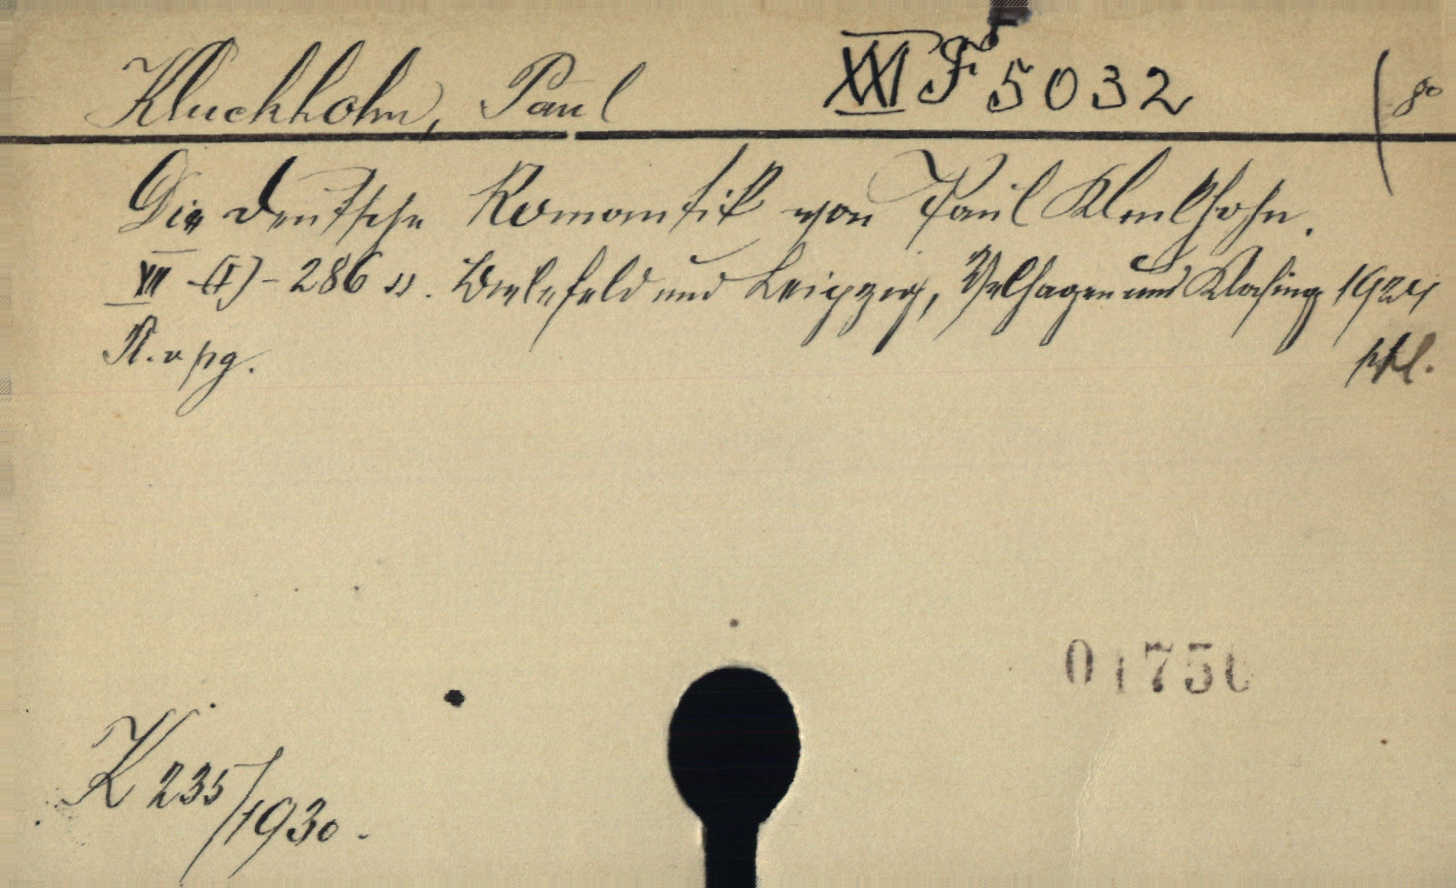 Kluckhohn, Paul XXI F 5032 8°
Die deutsche Romantik von Paul Kluckhohn.
VII -(I)- 286 ss. Bielefeld und Leipzig, Velhagen und Klasing 1924
R. v pg.
0175
K 235/1930.